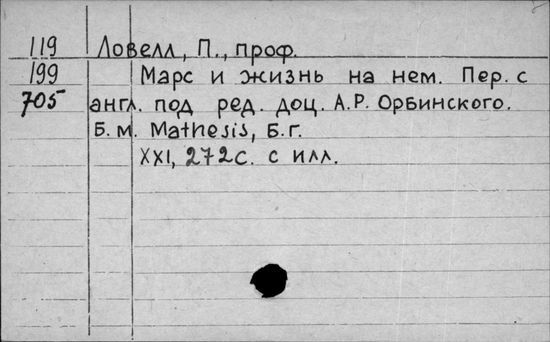 119 Ловелл, П., проф.
199 Марс и жизнь на нем. Пер. с
705 англ. под ред. доц. А.Р. Орбинского.
Б.м. Mathesis, Б.г.
XXI, 272с. с илл.